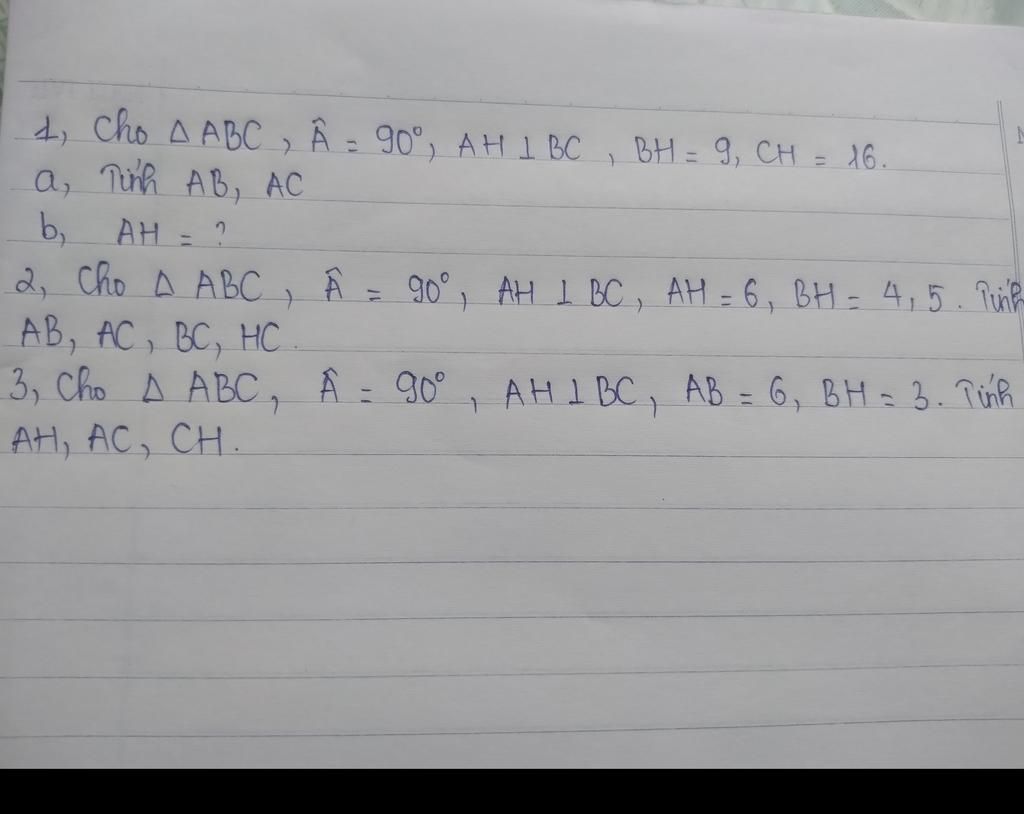 1, Cho Δ ABC, Â = 90°, AH ⊥ BC, BH = 9, CH = 16.
a, Tính AB, AC
b, AH = ?
2, Cho Δ ABC, Â = 90°, AH ⊥ BC, AH = 6, BH = 4,5. Tính
AB, AC, BC, HC.
3, Cho Δ ABC, Â = 90°, AH ⊥ BC, AB = 6, BH = 3. Tính
AH, AC, CH.